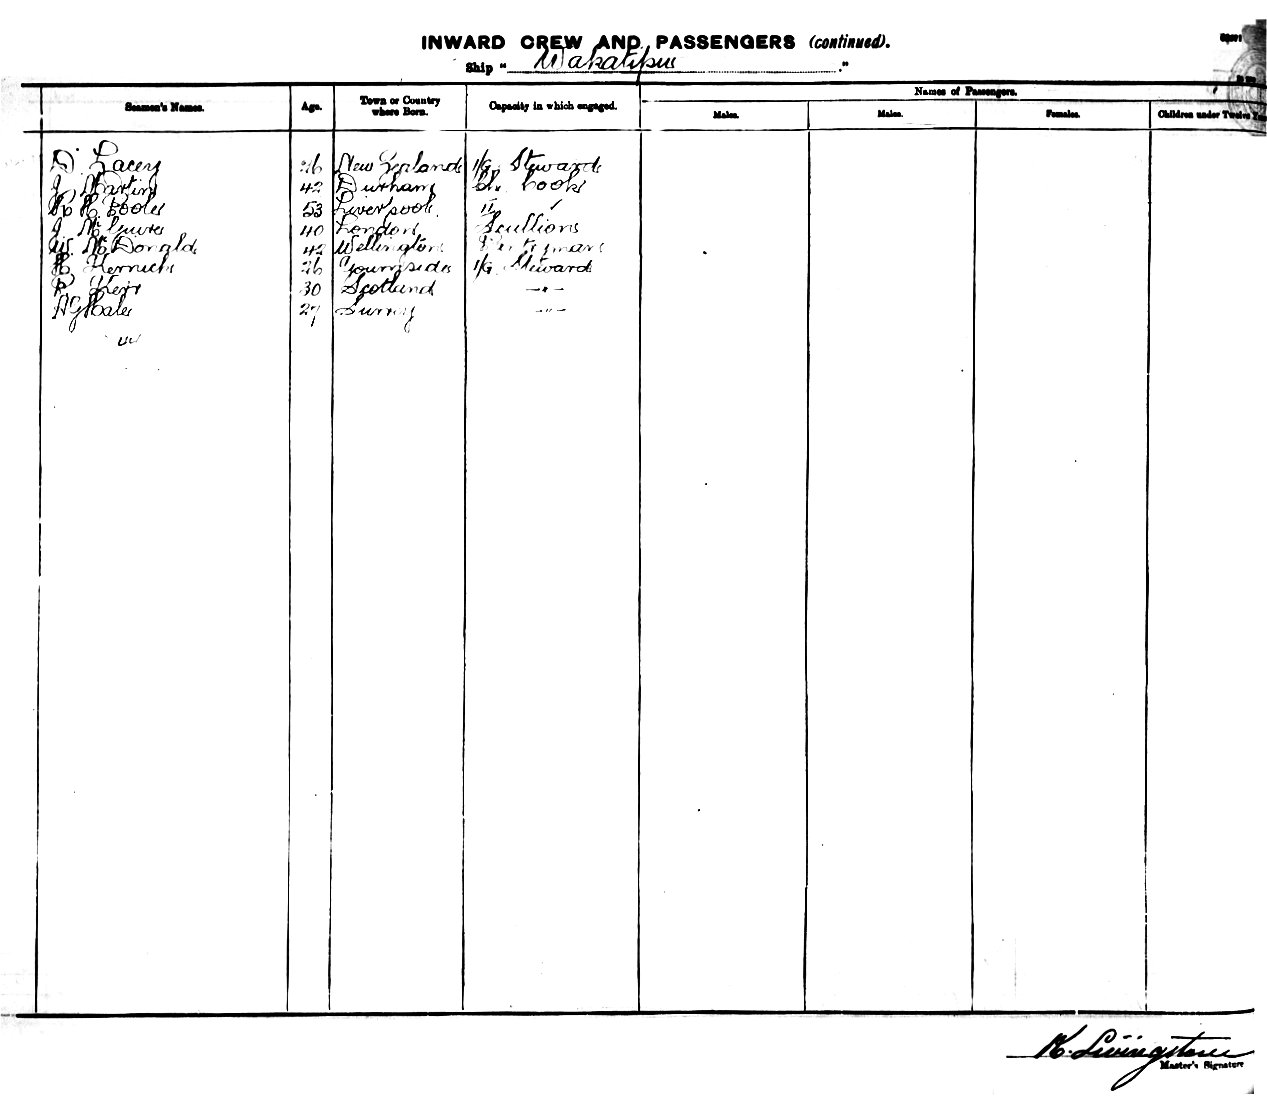 INWARD CREW AND PASSENGERS (continued).
Ship " Wakatipu ."
Names of Passengers.
Seamen's Names. Age. Town or Country where Born. Capacity in which engaged. Males. Males. Females. Children under Twelve
D. Lacey 26 New Zealand 1/G Steward
J Martin 42 Durham Ch. Cook
R H Poole 53 Liverpool II ✓
J McGuire 40 London Scullion
W. McDonald 42 Wellington Pantryman
H 26 1/G Steward
R Kerr 30 Scotland -"-
27 Surrey -"-
K. Livingstone
Master's Signature